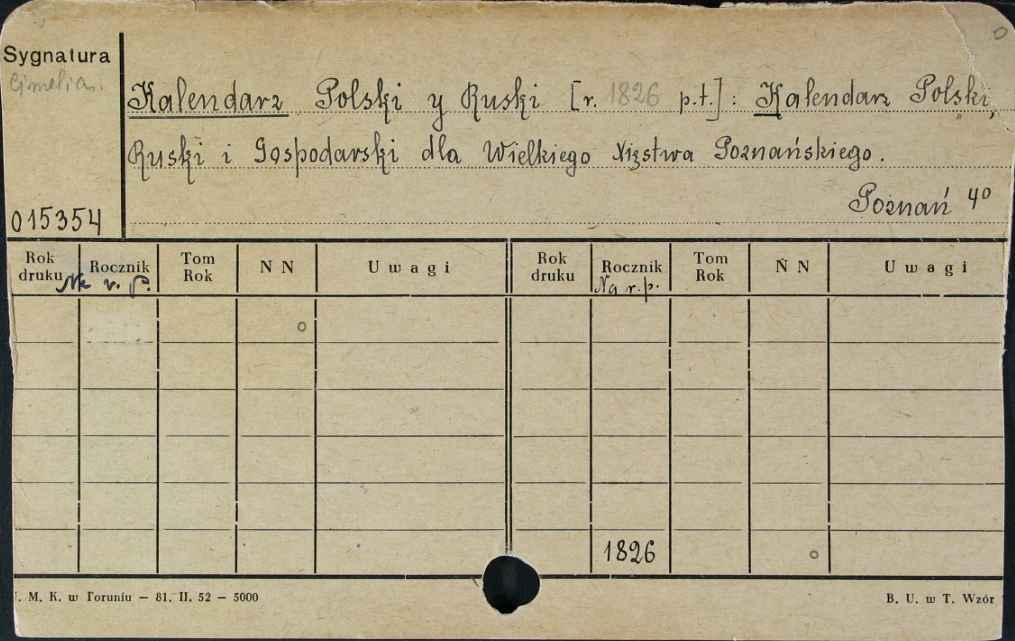 Sygnatura
Cimelia.
Kalendarz Polski y Ruski [r. 1826 p.t.]: Kalendarz Polski,
Ruski i Gospodarski dla Wielkiego Xięstwa Poznańskiego.
Poznań 4º
015354
Rok druku Rocznik Tom Rok N N Uwagi Rok druku Rocznik Tom Rok N N Uwagi
Na r. p. Na r. p.
1826
U. M. K. w Toruniu — 81. II. 52 — 5000 B. U. w T. Wzór